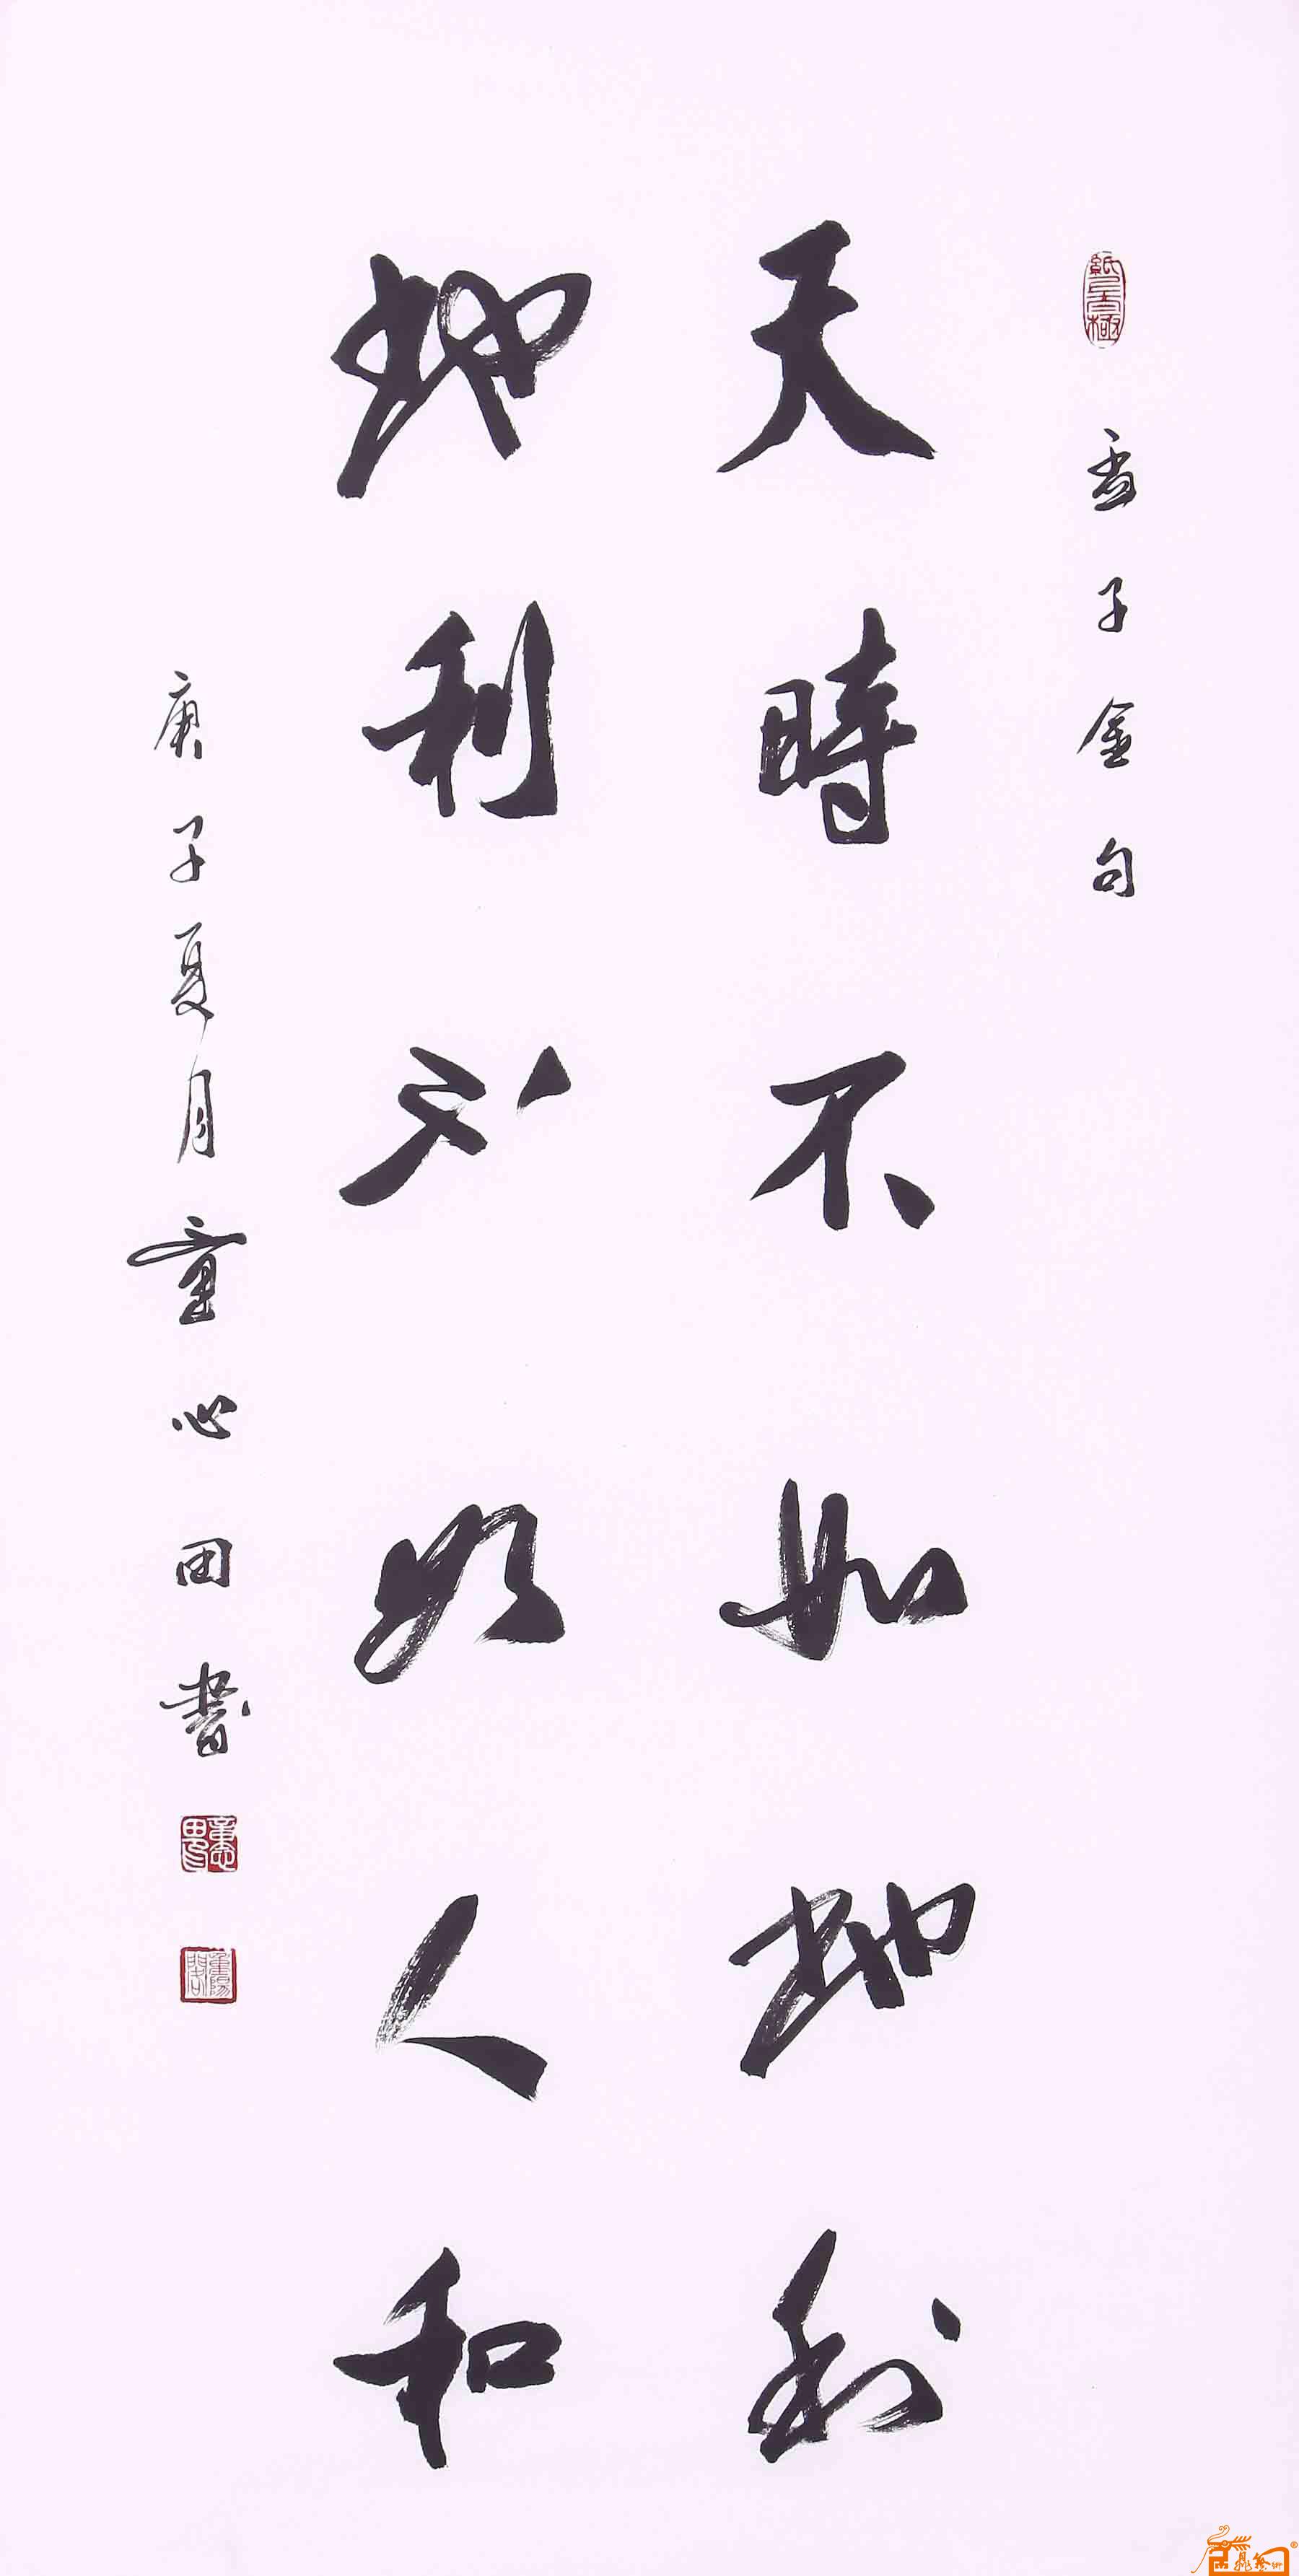 孟子金句
天時不如地利
地利不如人和
庚子夏月童心田書